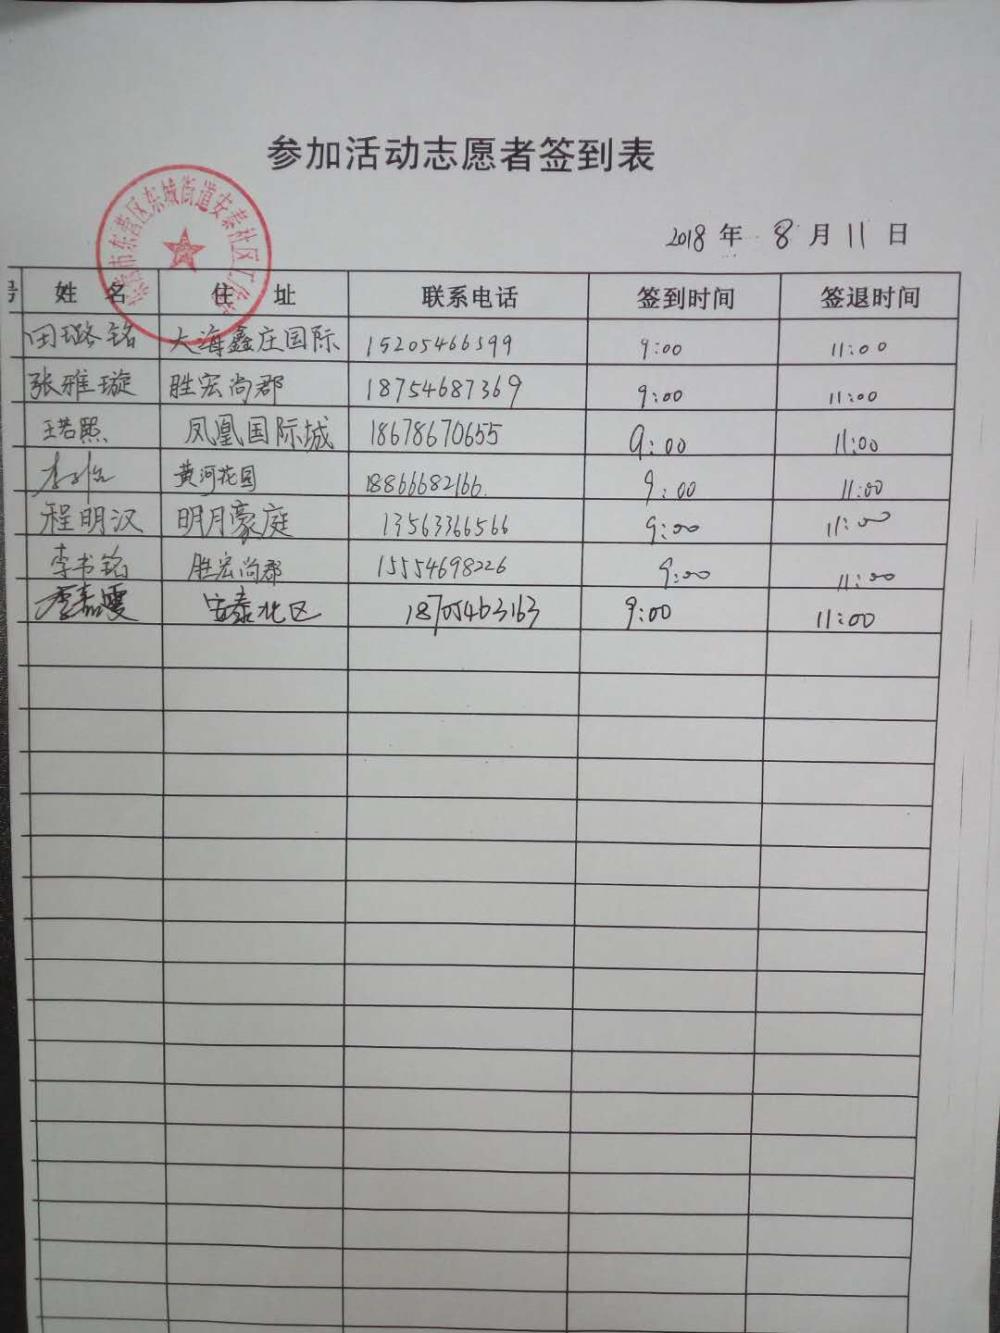 参加活动志愿者签到表
东营市东营区东城街道安泰社区工作
2018 年 8 月 11 日
号 姓 名 住 址 联系电话 签到时间 签退时间
田璐铭 大海鑫庄国际 15205466599 9:00 11:00
张雅璇 胜宏尚郡 18754687369 9:00 11:00
王若熙 凤凰国际城 18678670655 9:00 11:00
黄河花园 18866682166 9:00 11:00
程明汉 明月豪庭 13563366566 9:00 11:00
李书铭 胜宏尚郡 15554698226 9:00 11:00
李嘉雯 安泰北区 18705463163 9:00 11:00